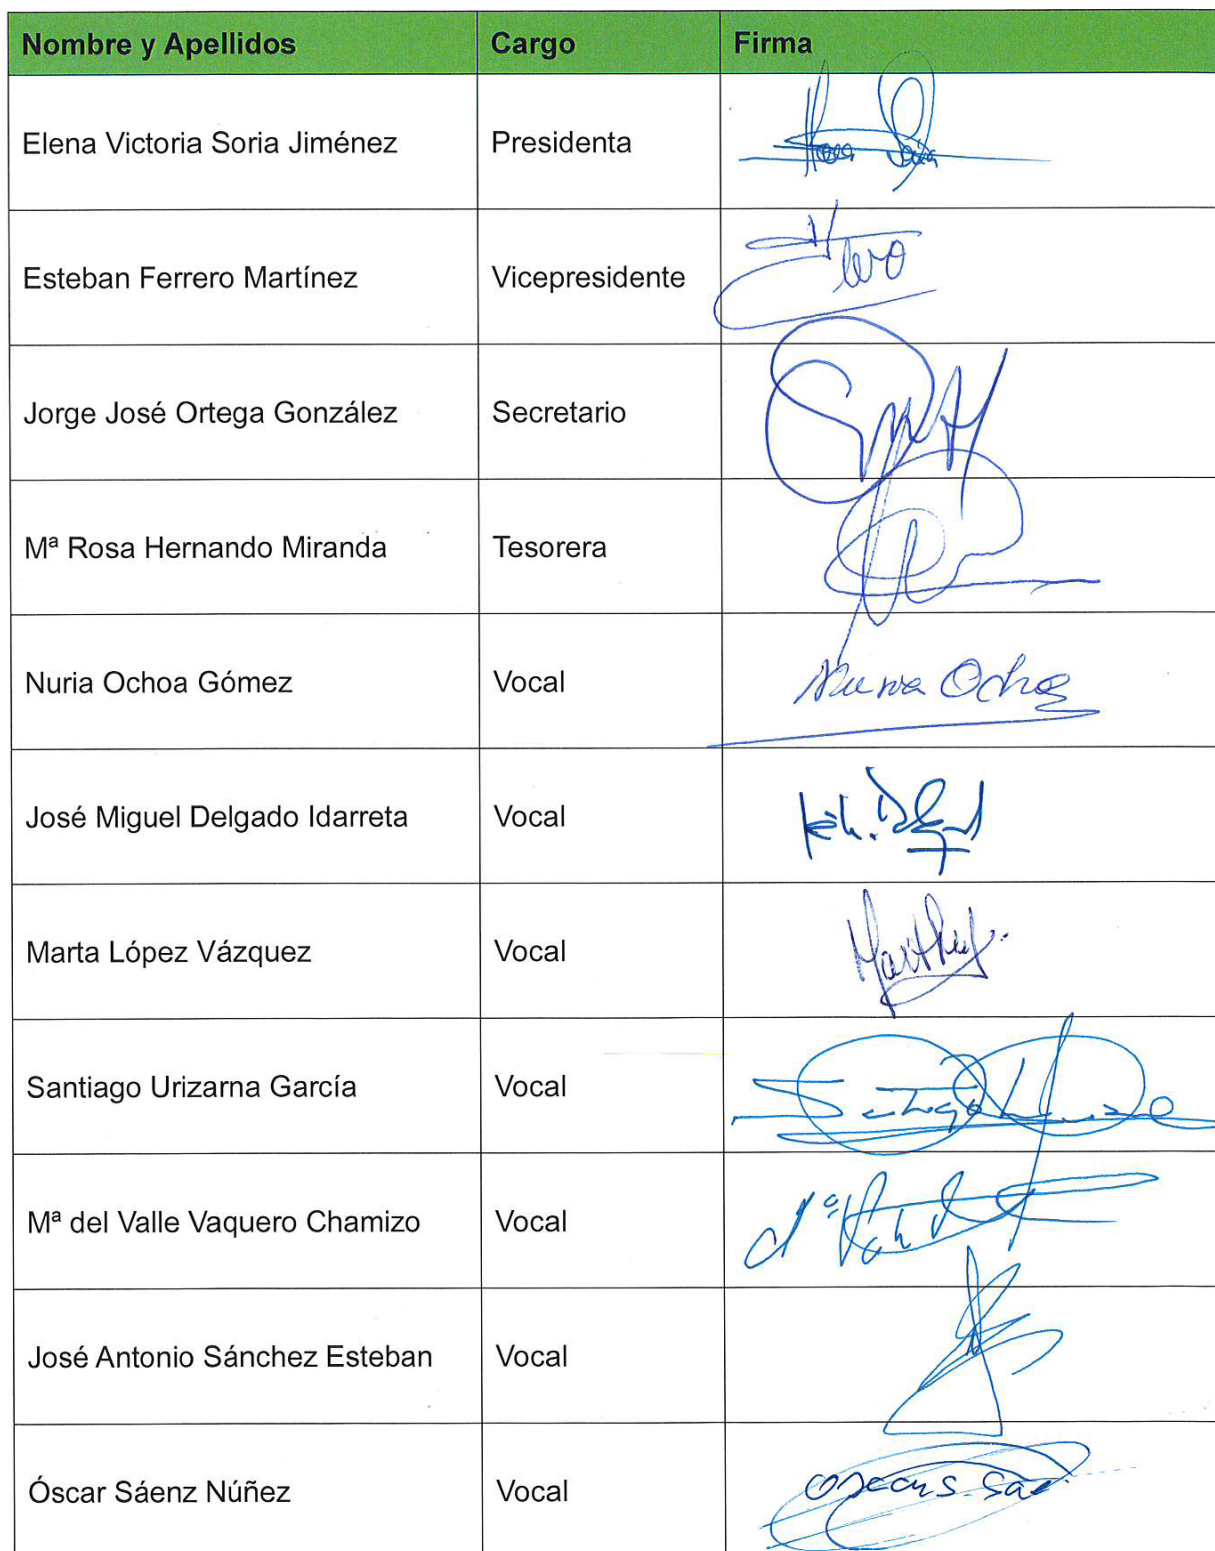 Nombre y Apellidos Cargo Firma
Elena Victoria Soria Jiménez Presidenta
Esteban Ferrero Martínez Vicepresidente
Jorge José Ortega González Secretario
Mª Rosa Hernando Miranda Tesorera
Nuria Ochoa Gómez Vocal Nuria Ochoa
José Miguel Delgado Idarreta Vocal
Marta López Vázquez Vocal
Santiago Urizarna García Vocal
Mª del Valle Vaquero Chamizo Vocal
José Antonio Sánchez Esteban Vocal
Óscar Sáenz Núñez Vocal